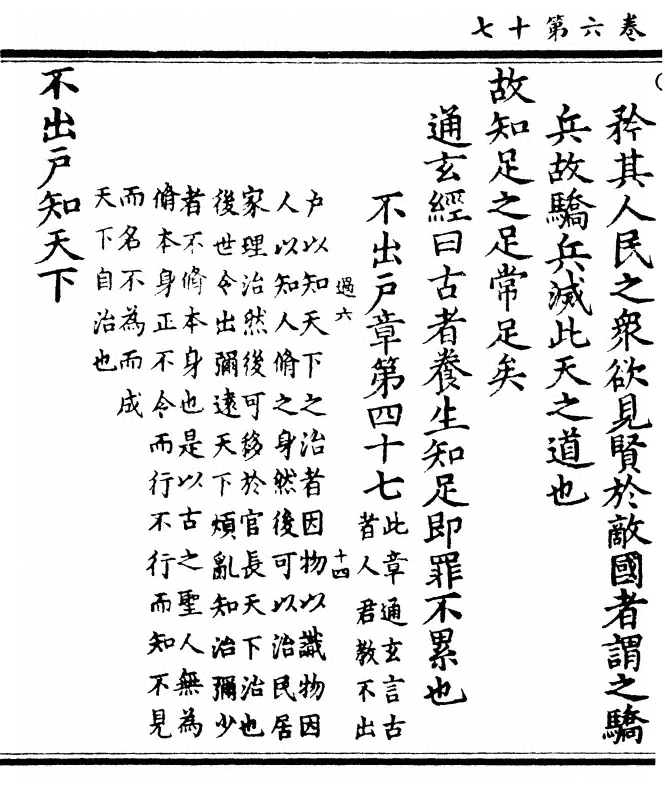 卷六第十七
矜其人民之衆欲見賢於敵國者謂之驕
兵故驕兵滅此天之道也
故知足之足常足矣
通玄經曰古者養生知足即罪不累也
不出戶章第四十七
此章通玄言古
者人君教不出
過六
十四
户以知天下之治者因物以識物因
人以知人脩之身然後可以治民居
家理治然後可移於官長天下治也
後世令出彌遠天下煩亂知治彌少
者不脩本身也是以古之聖人無為
脩本身正不令而行不行而知不見
而名不為而成
天下自治也
不出戶知天下